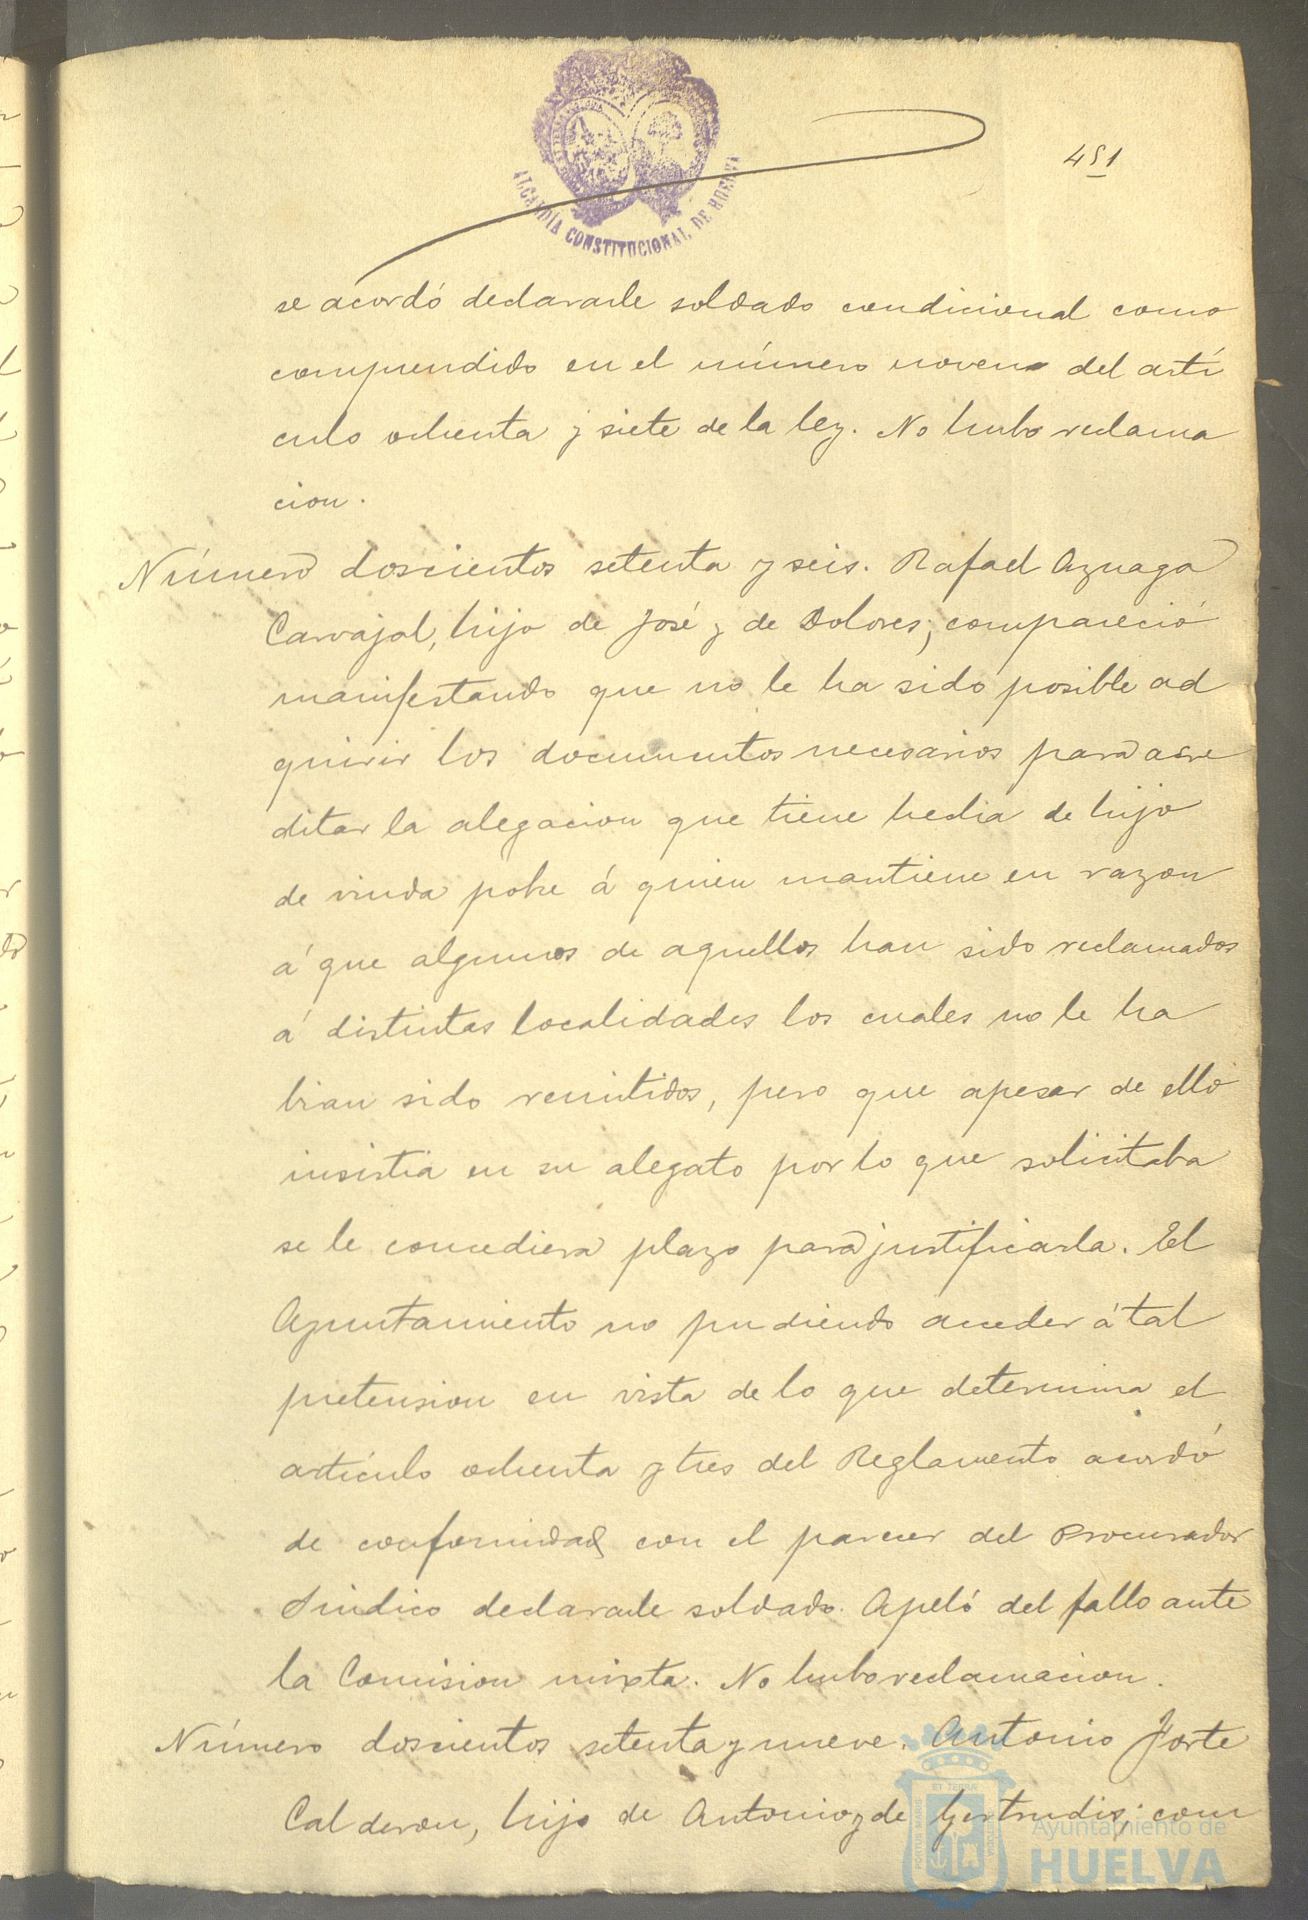 451
ALCALDÍA CONSTITUCIONAL DE HUELVA
se acordó declararle soldado condicional como
comprendido en el número noveno del artí
culo ochenta y siete de la ley. No hubo reclama
cion.
Número doscientos setenta y seis. Rafael Azuaga
Carvajal, hijo de José y de Dolores; compareció
manifestando que no le ha sido posible ad
quirir los documentos necesarios para acre
ditar la alegacion que tiene hecha de hijo
de viuda pobre á quien mantiene en razon
á que algunos de aquellos han sido reclamados
á distintas localidades los cuales no le ha
bian sido remitidos, pero que apesar de ello
insistia en su alegato por lo que solicitaba
se le concediera plazo para justificarla. El
Ayuntamiento no pudiendo acceder á tal
pretension en vista de lo que determina el
artículo ochenta y tres del Reglamento acordó
de conformidad con el parecer del Procurador
Sindico declararle soldado. Apeló del fallo ante
la Comision mixta. No hubo reclamacion.
Número doscientos setenta y nueve. Antonio Forte
Calderon, hijo de Antonio y de Gertrudis; com
Ayuntamiento de
HUELVA